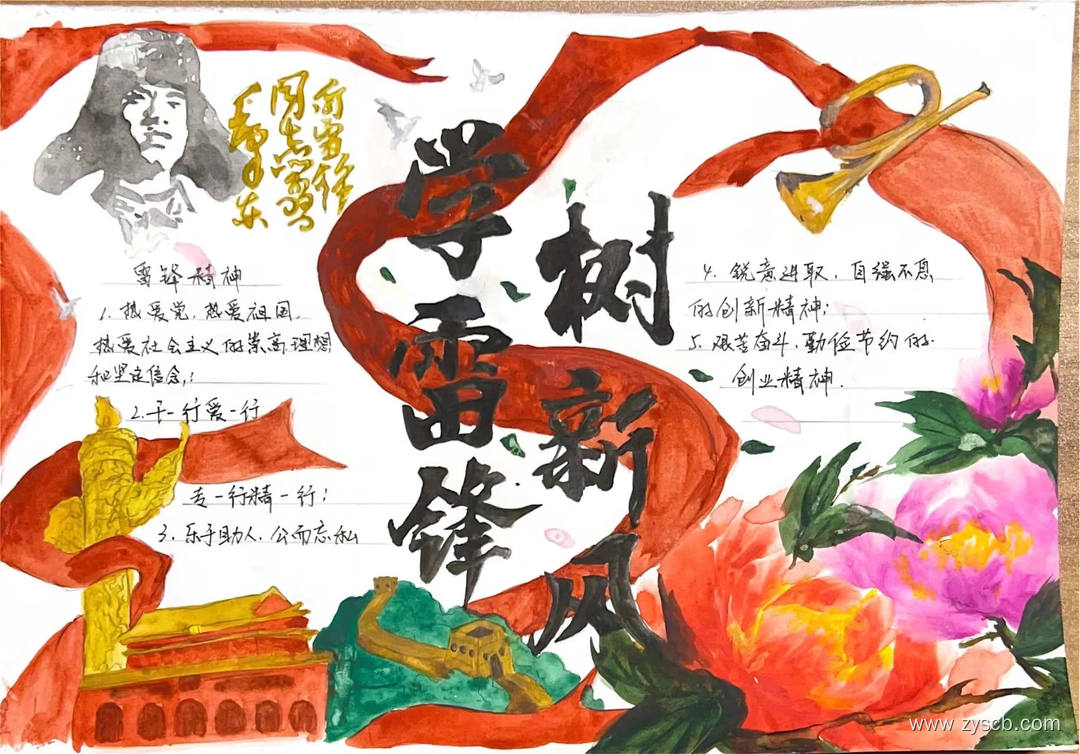 向雷锋
同志学习
毛泽东
学雷锋
树新风
雷锋精神
1. 热爱党,热爱祖国,
热爱社会主义的崇高理想
和坚定信念;
2. 干一行爱一行
专一行精一行;
3. 乐于助人、公而忘私
4. 锐意进取、自强不息
的创新精神;
5. 艰苦奋斗、勤俭节约的
创业精神.
www.zyscb.com